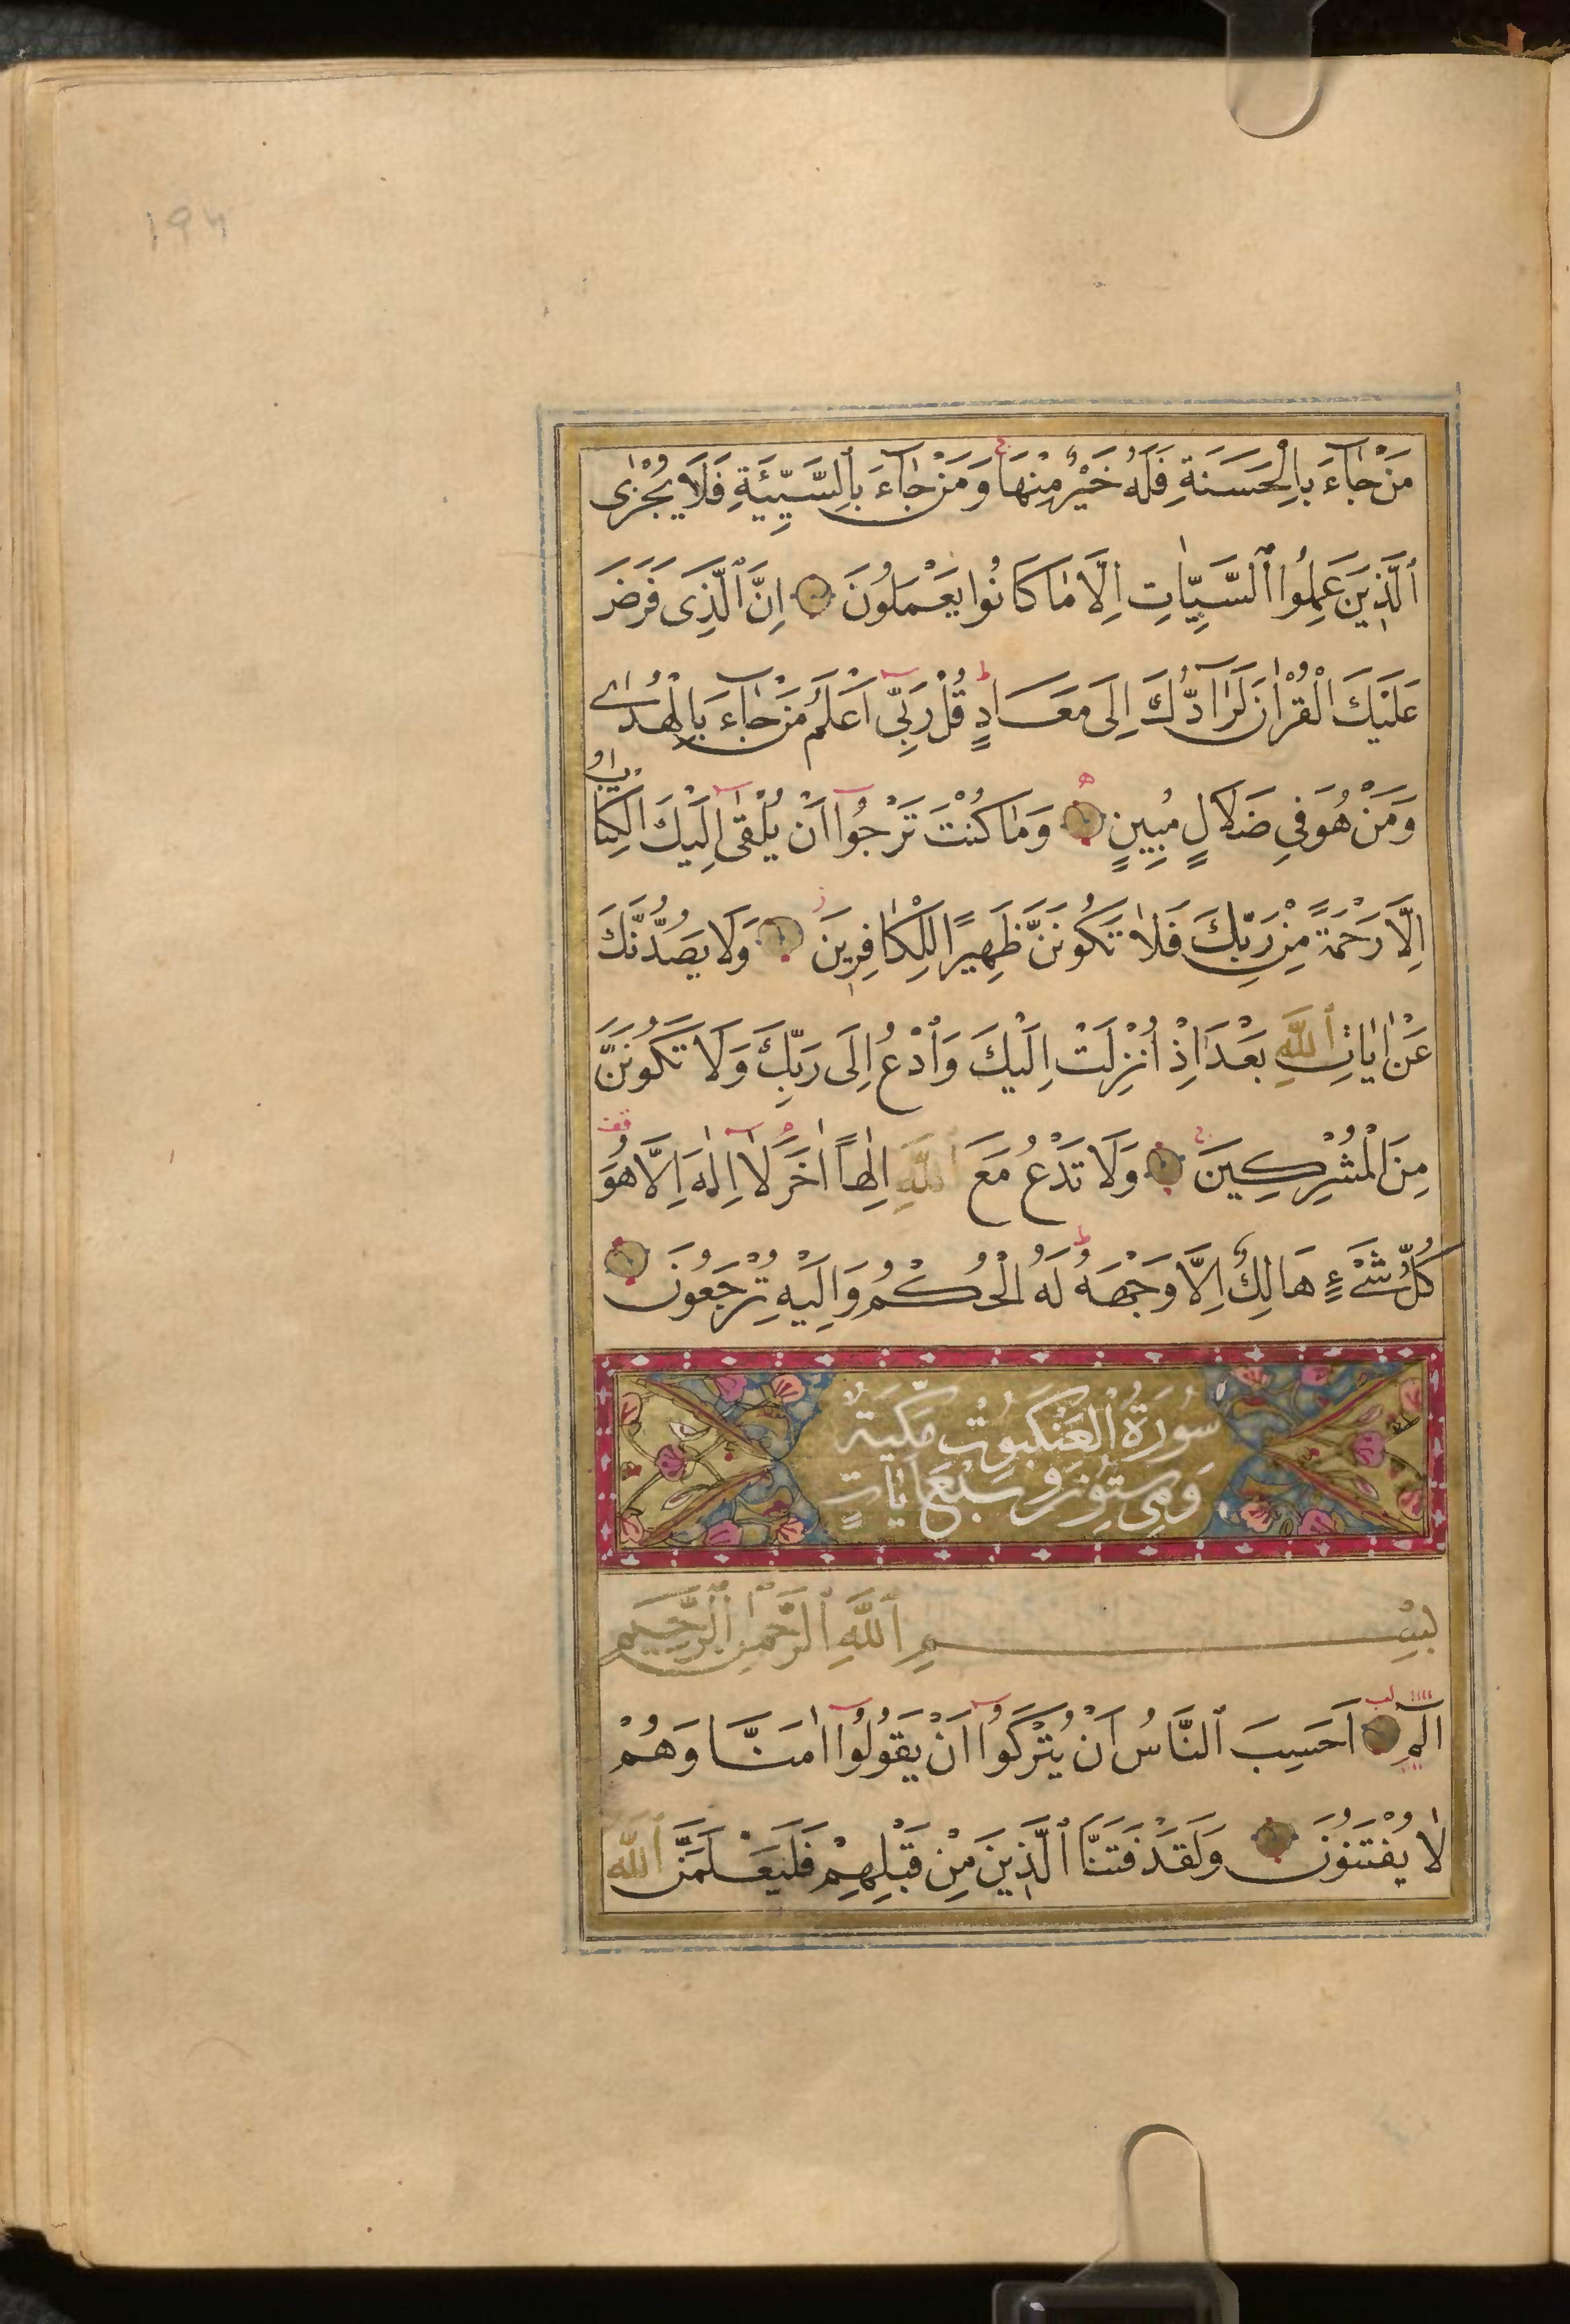 ١٩٦
مَنْ جَاءَ بِالْحَسَنَةِ فَلَهُ خَيْرٌ مِنْهَا وَمَنْ جَاءَ بِالسَّيِّئَةِ فَلَا يُجْزَى
ٱلَّذِينَ عَمِلُوا ٱلسَّيِّاٰتِ اِلَّا مَا كَانُوا يَعْمَلُونَ اِنَّ ٱلَّذِى فَرَضَ
عَلَيْكَ الْقُرْاٰنَ لَرَادُّكَ اِلَى مَعَادٍ قُلْ رَبِّى اَعْلَمُ مَنْ جَاءَ بِالْهُدٰى
وَمَنْ هُوَ فِى ضَلَالٍ مُبِينٍ وَمَا كُنْتَ تَرْجُوا اَنْ يُلْقٰى اِلَيْكَ الْكِتَابُ
اِلَّا رَحْمَةً مِنْ رَبِّكَ فَلَا تَكُونَنَّ ظَهِيرًا لِلْكَافِرِينَ وَلَا يَصُدُّنَّكَ
عَنْ اٰيَاتِ ٱللَّهِ بَعْدَ اِذْ اُنْزِلَتْ اِلَيْكَ وَٱدْعُ اِلَى رَبِّكَ وَلَا تَكُونَنَّ
مِنَ الْمُشْرِكِينَ وَلَا تَدْعُ مَعَ ٱللَّهِ اِلٰهًا اٰخَرَ لَا اِلٰهَ اِلَّا هُوَ
كُلُّ شَىْءٍ هَالِكٌ اِلَّا وَجْهَهُ لَهُ الْحُكْمُ وَاِلَيْهِ تُرْجَعُونَ
سُورَةُ ٱلْعَنْكَبُوتِ مَكِّيَةٌ
وَهِىَ سِتُّونَ وَسَبْعَ اٰيَاتٍ
بِسْمِ ٱللَّهِ ٱلرَّحْمٰنِ ٱلرَّحِيمِ
الٓمٓ اَحَسِبَ ٱلنَّاسُ اَنْ يُتْرَكُوا اَنْ يَقُولُوا اٰمَنَّا وَهُمْ
لَا يُفْتَنُونَ وَلَقَدْ فَتَنَّا ٱلَّذِينَ مِنْ قَبْلِهِمْ فَلَيَعْلَمَنَّ ٱللَّهُ